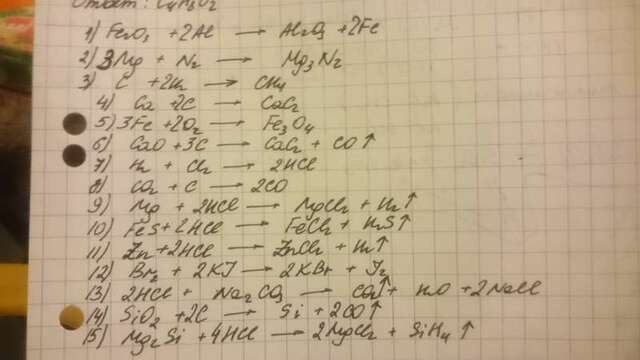 Ответ: C4H8O2
1) Fe2O3 + 2Al → Al2O3 + 2Fe
2) 3Mg + N2 → Mg3N2
3) C + 2H2 → CH4
4) Ca + 2C → CaC2
5) 3Fe + 2O2 → Fe3O4
6) CaO + 3C → CaC2 + CO↑
7) H2 + Cl2 → 2HCl
8) CO2 + C → 2CO
9) Mg + 2HCl → MgCl2 + H2↑
10) FeS + 2HCl → FeCl2 + H2S↑
11) Zn + 2HCl → ZnCl2 + H2↑
12) Br2 + 2KJ → 2KBr + J2
13) 2HCl + Na2CO3 → CO2↑ + H2O + 2NaCl
14) SiO2 + 2C → Si + 2CO↑
15) Mg2Si + 4HCl → 2MgCl2 + SiH4↑